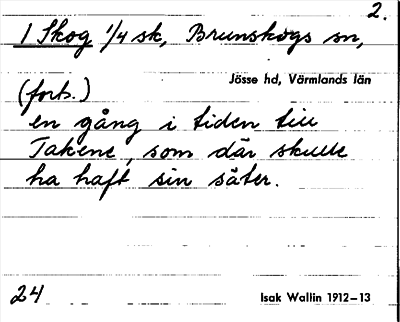 2.
1 Skog 1/4 sk, Brunskogs sn,
Jösse hd, Värmlands län
(forts.)
en gång i tiden till
Takene, som där skulle
ha haft sin säter.
24
Isak Wallin 1912-13